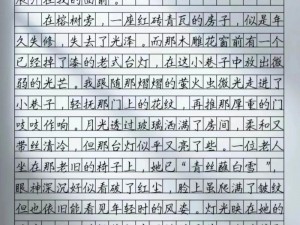 展开在我的面前。
在榕树旁，一座红砖青瓦的房子，似是年
久失修，失去了光泽，而那木雕花窗前有一个
已经掉了漆的老式台灯，在这小巷子中放出微
弱的光芒。我跟随那熠熠的萤火虫微光走进了
小巷子，轻抚那门上的花纹，再推那厚重的门
吱吱作响。月光透过玻璃洒满了房间，柔和又
带丝清冷，但那台灯似乎又亮了些，一位老人
坐在那老旧的椅子上，她已“青丝蘸白雪”，
眼神深沉好似看破了红尘，脸上虽爬满了皱纹
但也依旧能看见年轻时的风姿，灯光映在她的